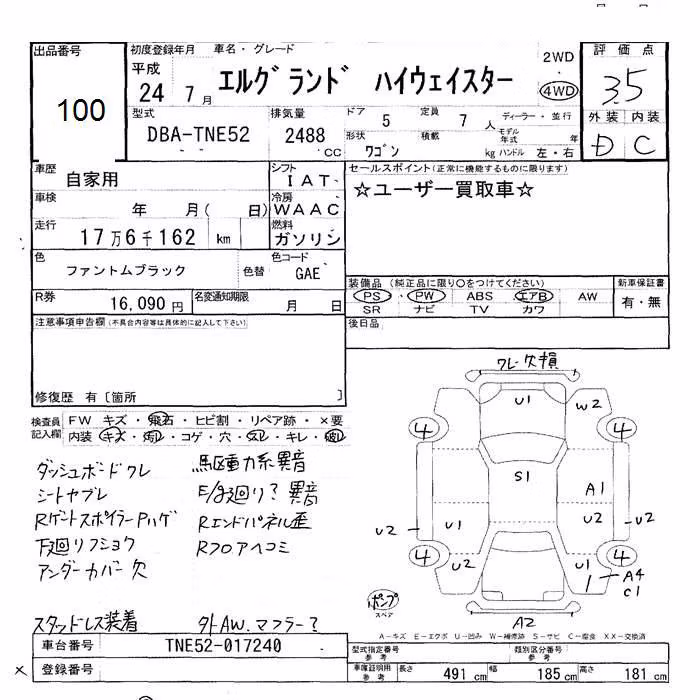 出品番号 初度登録年月 車名・グレード 2WD 評価点
100 平成 24 7月 エルグランド ハイウェイスター 4WD 3.5
型式 排気量 ドア 5 定員 7人 ディーラー・並行 外装 内装
DBA-TNE52 2488 CC 形状 ワゴン 積載 kg モデル年式 年 ハンドル 左・右 D C
車歴 自家用 シフト IAT セールスポイント(正常に機能するものに限ります)
車検 年 月( 日) 冷房 WAAC ☆ユーザー買取車☆
走行 17万6千162 km 燃料 ガソリン
色 ファントムブラック 色替 色コード GAE
装備品 (純正品に限り○をつけてください) 新車保証書
PS・ PW ABS エアB AW 有・無
SR ナビ TV カワ
R券 16,090円 名変通知期限 月 日
後日品
注意事項申告欄(不具合内容等は具体的に記入して下さい)
修復歴 有〔箇所 〕
検査員記入欄 FW キズ・飛石・ヒビ割・リペア跡・×要
内装・キズ・汚レ・コゲ・穴・スレ・キレ・
ダッシュボードワレ 駆動力系異音
シートヤブレ F/足廻り?異音
Rゲートスポイラー Pハゲ Rエンドパネル歪
下廻りフショク Rフロアヘコミ
アンダーカバー欠
スタッドレス装着 外AW.マフラー?
ワレ・欠損
U1 W2
4 4
S1
A1
U2 U1 U2 U2
4 4
U2 U1
A4
C1
ポンプ
スペア
A2
A-キズ E-エクボ U-凹み W-補修跡 S-サビ C-腐食 XX-交換済
車台番号 TNE52-017240 型式指定番号 参考 類別区分番号 参考
× 登録番号 車庫証明用 参考 長さ 491cm 幅 185cm 高さ 181cm